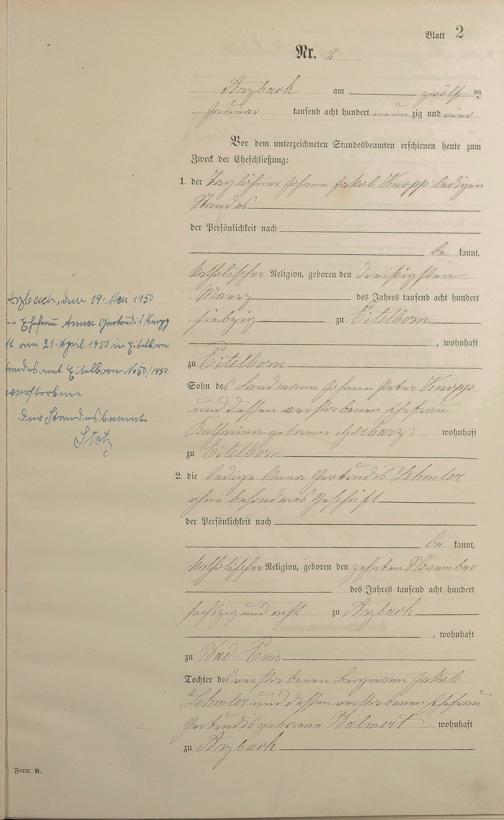 Blatt 2
Nr. 2
Arzbach am zwölf ten
Januar tausend acht hundert neun zig und vier
Vor dem unterzeichneten Standesbeamten erschienen heute zum
Zweck der Eheschließung:
1. der Taglöhner Johann Jakob Knopp ledigen
Standes
der Persönlichkeit nach
be kannt,
katholischer Religion, geboren den dreißigsten
Maerz des Jahres tausend acht hundert
siebzig zu Eitelborn
, wohnhaft
zu Eitelborn
Sohn des Landmann Johann Peter Knopp
und dessen verstorbenen Ehefrau
Katharina geborene Gerharz wohnhaft
zu Eitelborn
2. die ledige Anna Gertrudis Lehmler
ohne besonderes Geschäft
der Persönlichkeit nach
be kannt,
katholischer Religion, geboren den zehnten
des Jahres tausend acht hundert
sechszig und acht zu Arzbach
, wohnhaft
zu Bad Ems
Tochter des verstorbenen Bergmann Jakob
Lehmler und dessen verstorbenen Ehefrau
Gertrudis geborene wohnhaft
zu Arzbach
Arzbach, den 19. Mai 1950
Ehefrau Anna Gertrudis Knopp
am 21. April 1950 in Eitelborn
Eitelborn No 50/1950
verstorben
Der Standesbeamte
Stotz
Form. B.